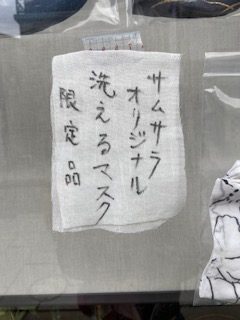 サムサラ
オリジナル
洗えるマスク
限定品